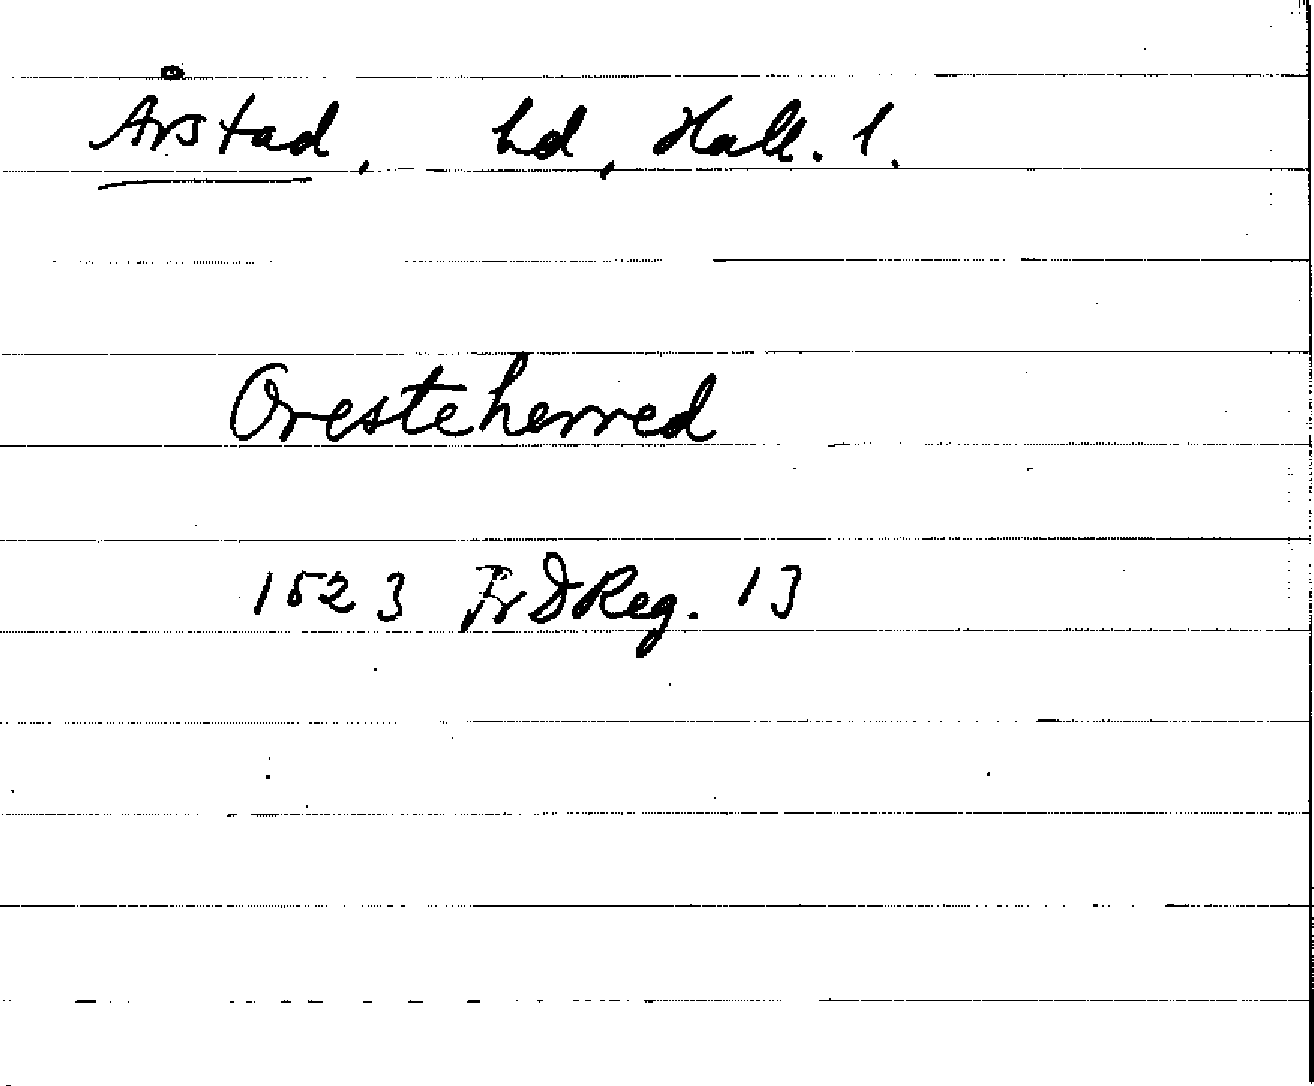 Årstad, hd, Hall. l.
Oresteherred
1523 Fr D Reg. 13